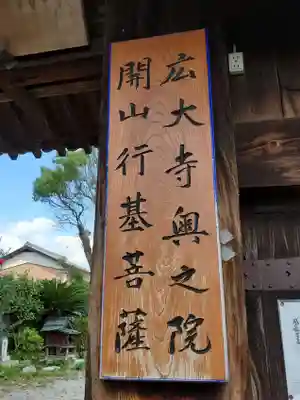 広大寺奥之院
開山行基菩薩